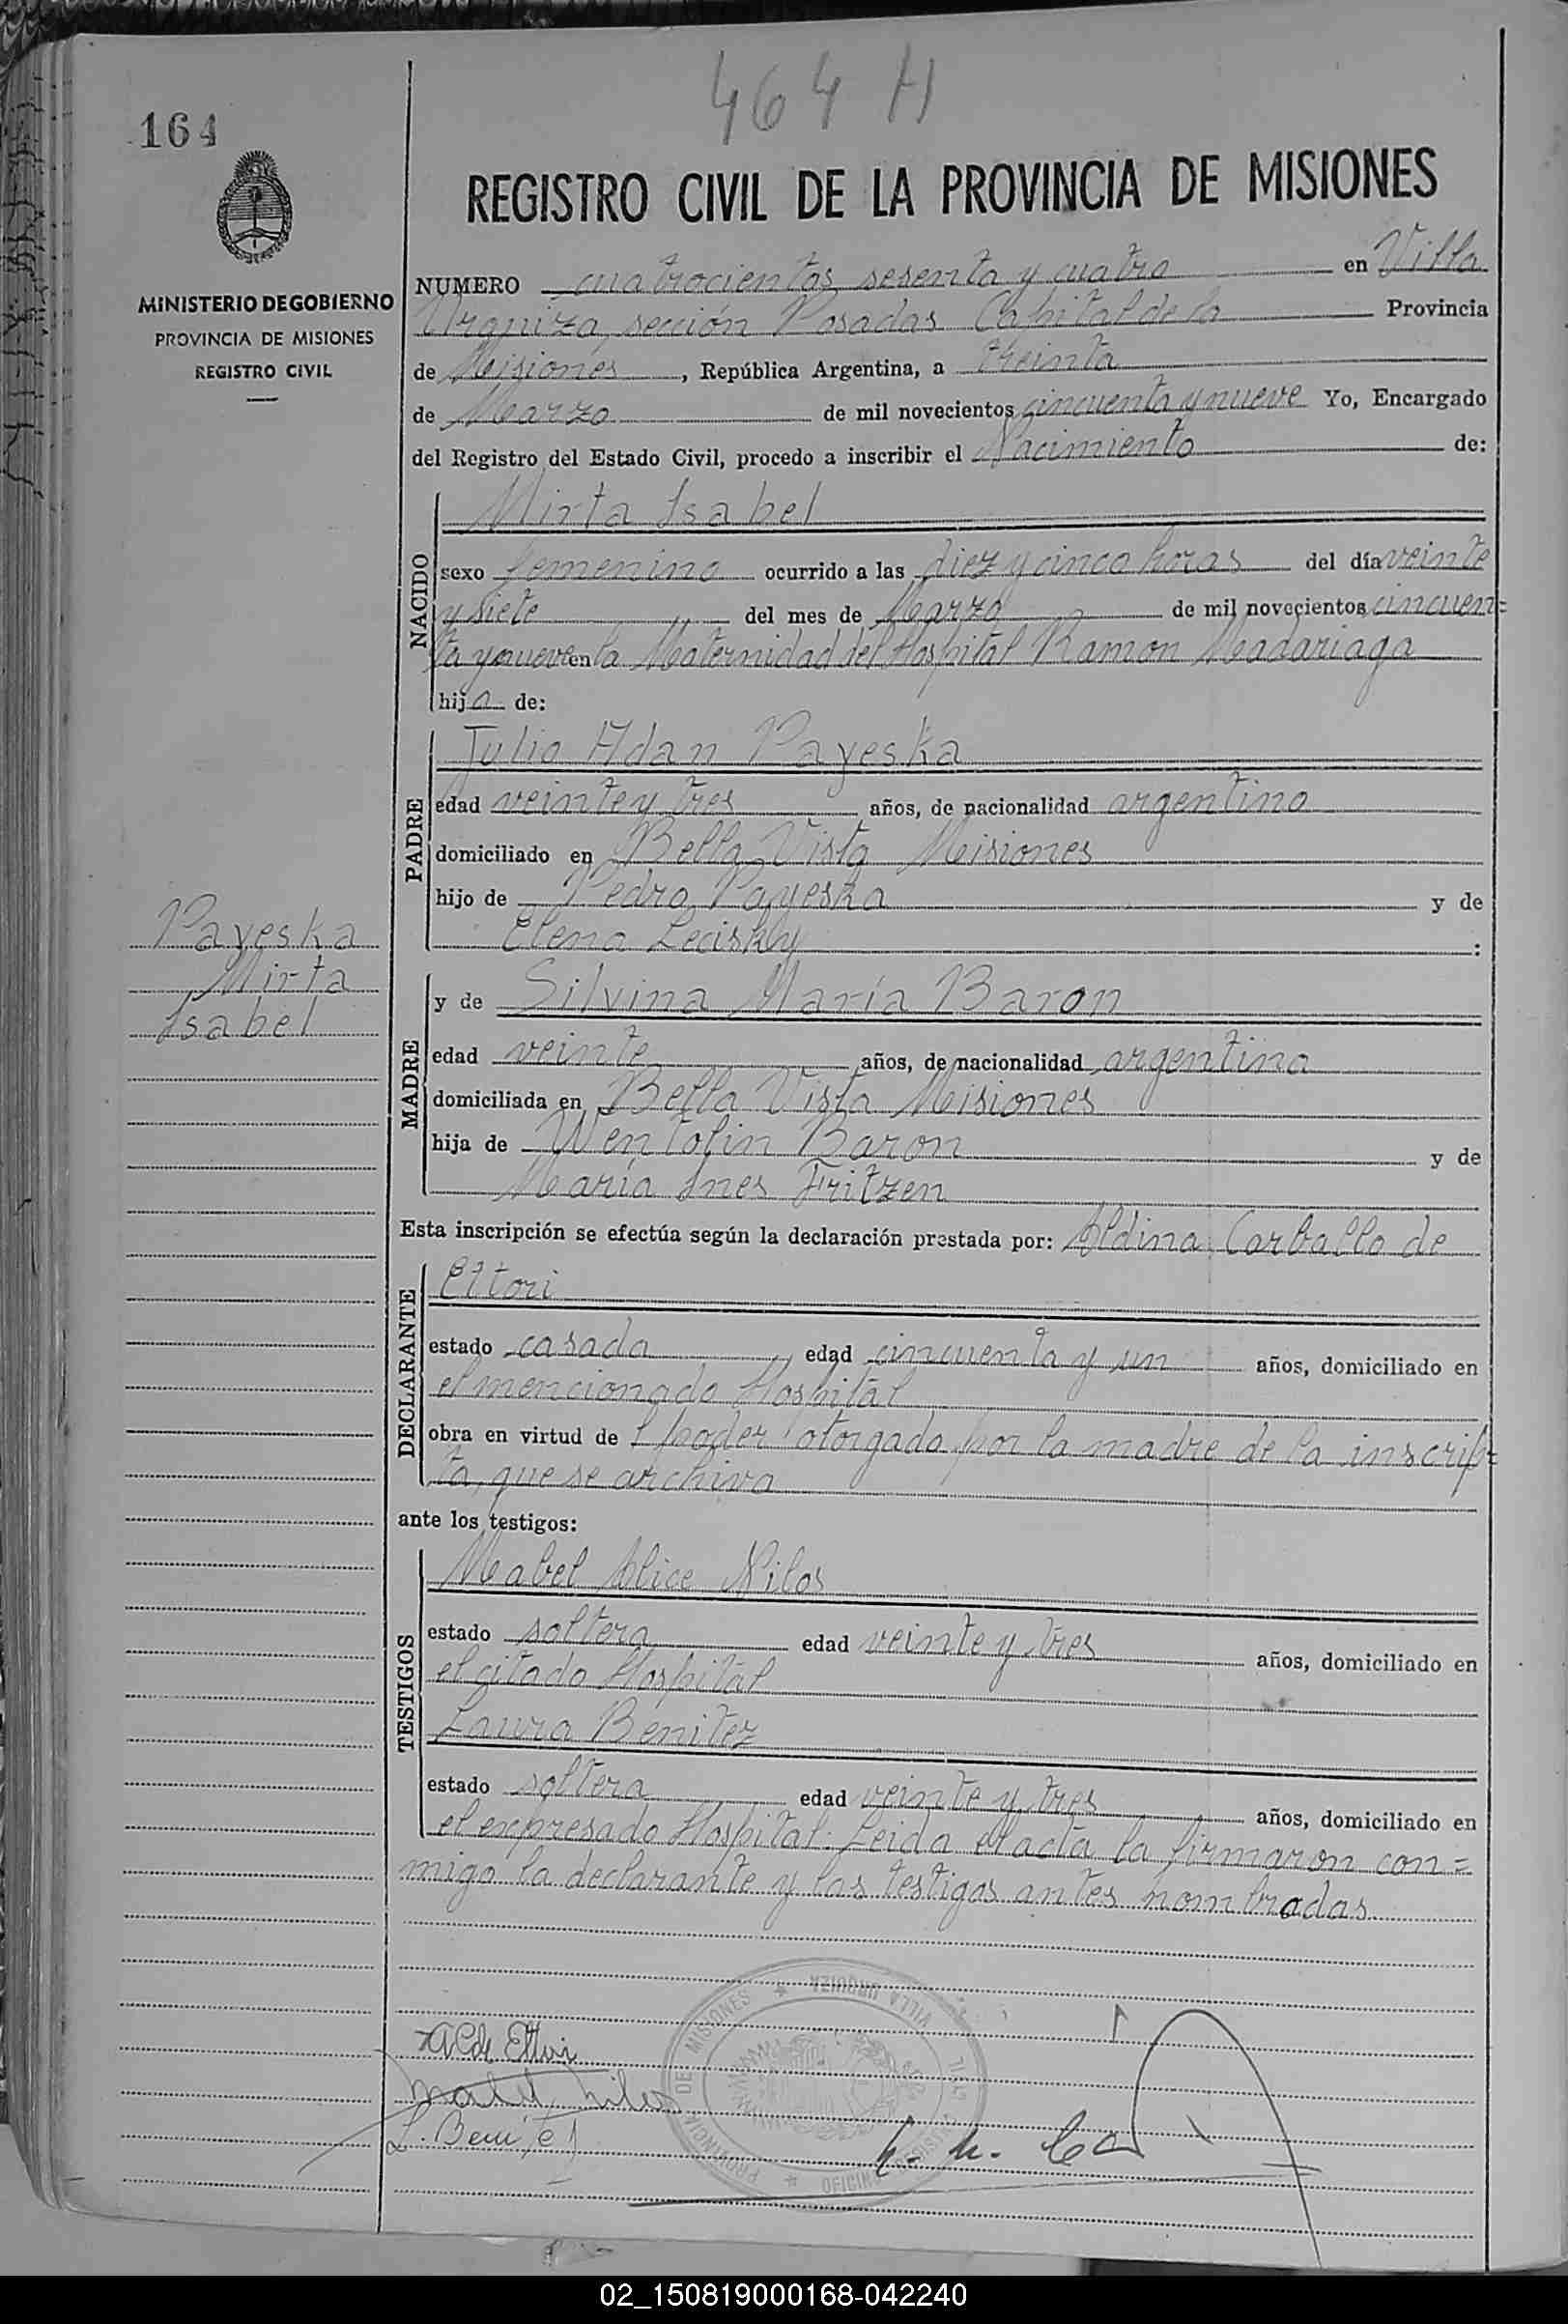 464 H
164
REGISTRO CIVIL DE LA PROVINCIA DE MISIONES
MINISTERIO DE GOBIERNO
PROVINCIA DE MISIONES
REGISTRO CIVIL
NUMERO cuatrocientos sesenta y cuatro en Villa
Urquiza, sección Posadas Capital de la Provincia
de Misiones, República Argentina, a treinta
de Marzo de mil novecientos cincuenta y nueve Yo, Encargado
del Registro del Estado Civil, procedo a inscribir el Nacimiento de:
NACIDO
Mirta Isabel
sexo femenino ocurrido a las diez y cinco horas del día veinte
y siete del mes de Marzo de mil novecientos cincuen=
ta y nueve en la Maternidad del Hospital Ramon Madariaga
hija de:
PADRE
Julio Adan Payeska
edad veinte y tres años, de nacionalidad argentino
domiciliado en Bella Vista Misiones
hijo de Pedro Payeska y de
Elena Lecishly:
Payeska
Mirta
Isabel
MADRE
y de Silvina María Baron
edad veinte años, de nacionalidad argentina
domiciliada en Bella Vista Misiones
hija de Wentolin Baron y de
María Ines Fritzen
Esta inscripción se efectúa según la declaración prestada por: Aldina Carballo de
DECLARANTE
Ettori
estado casada, edad cincuenta y un años, domiciliado en
el mencionado Hospital
obra en virtud de l poder otorgado por la madre de la inscrip=
ta, que se archiva
ante los testigos:
TESTIGOS
Mabel Alice Nilos
estado soltera edad veinte y tres años, domiciliado en
el citado Hospital
Laura Benitez
estado soltera edad veinte y tres años, domiciliado en
el expresado Hospital. Leida el acta la firmaron con=
migo la declarante y las testigas antes nombradas
PROVINCIA DE MISIONES * VILLA URQUIZA * OFICINA REGISTRO CIVIL
A C de Ettori
Mabel Nilos
L. Benitez
02_150819000168-042240